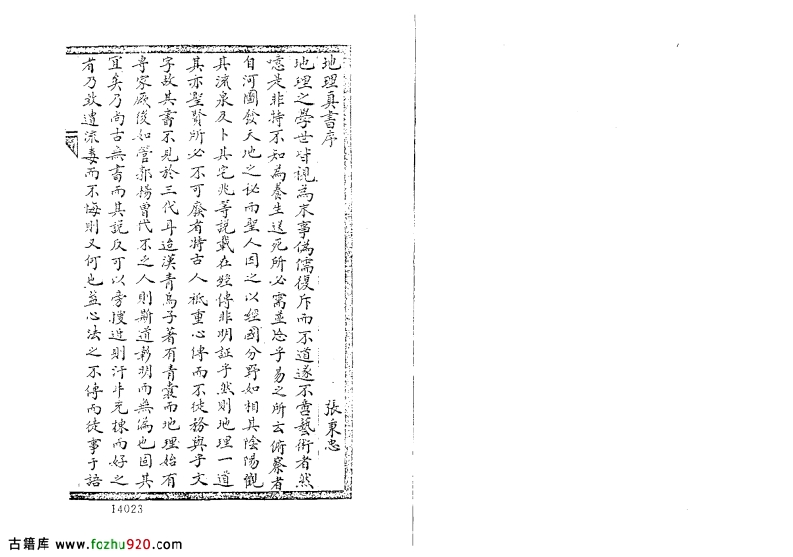 地理真書序
張秉忠
地理之學世皆視為末事偽儒復斥而不道遂不啻藝術者然
噫是非特不知為養生送死所必需並忘乎易之所云俯察者
自河圖發天地之祕而聖人因之以經國分野如相其陰陽觀
其流泉及卜其宅兆等說載在經傳非明証乎然則地理一道
其亦聖賢所必不可廢者特古人祇重心傳而不徒務與乎文
字故其書不見於三代耳迨漢青烏子著有青囊而地理始有
專家厥後如管郭楊曾代不之人則斯道彰明而無漏也固其
宜矣乃尚古無書而其說反可以旁搜近則汗牛充棟而好之
者乃致遺流毒而不悔則又何也蓋心法之不傳而徒事于語
14023
古籍库 www.fozhu920.com